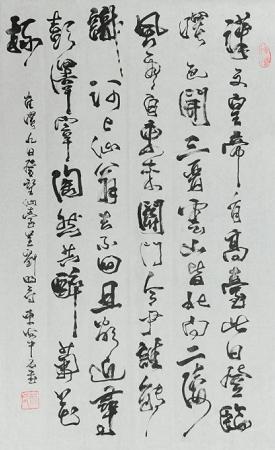 漢文皇帝有高臺此日登臨
曙色開三晉雲山皆北向二陵
風雨自東來關門令尹誰能
識河上仙翁去不回且欲近尋
彭澤宰陶然共醉菊花
杯
崔曙九日登望仙臺呈劉明府